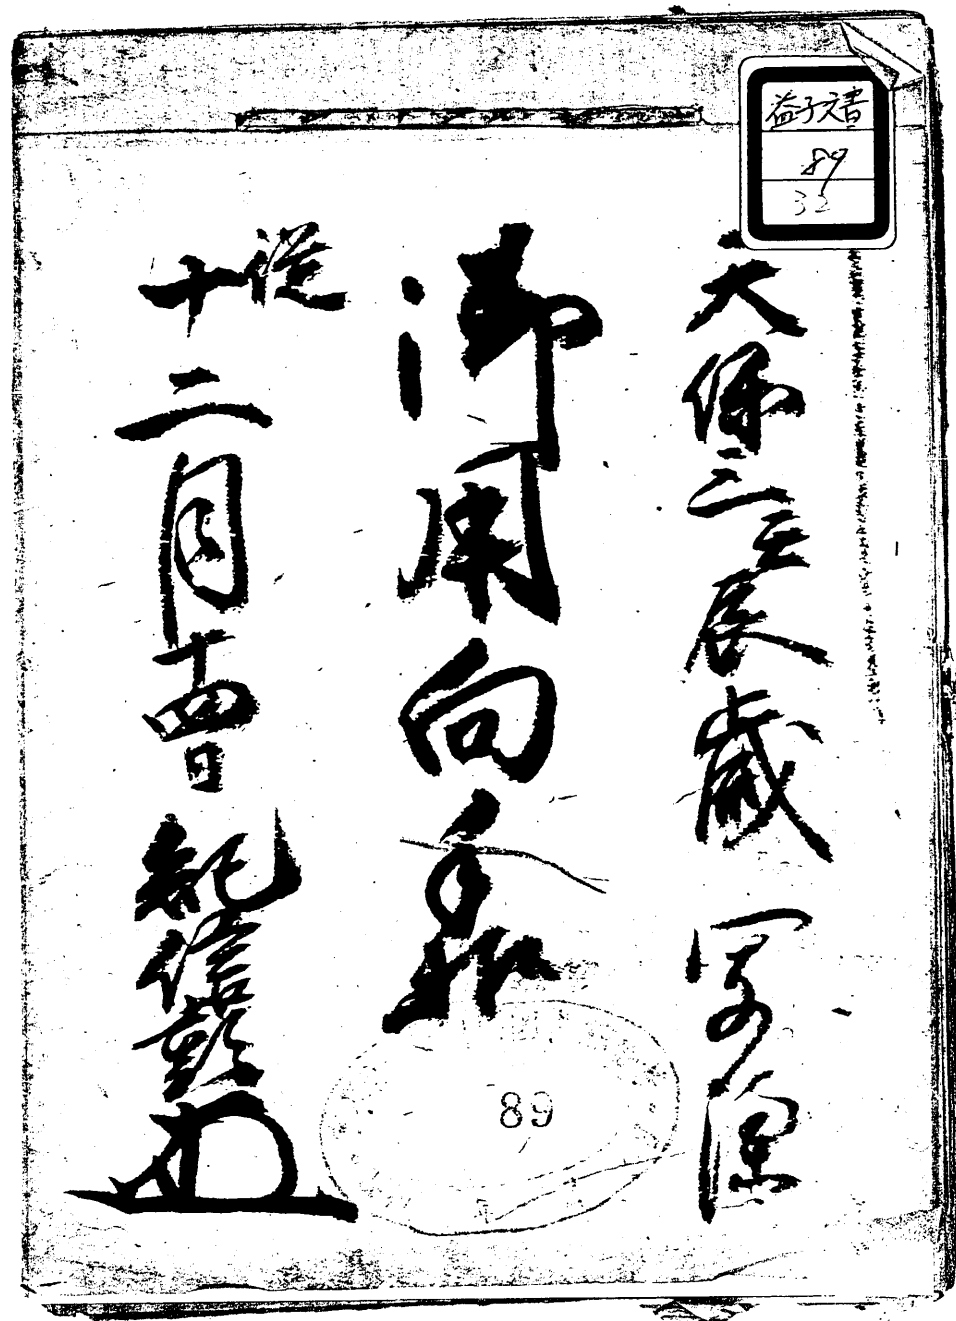 益子文書
89
32
天保三壬辰歳
御用向手扣
従
十二月十四日 紀信郭
89